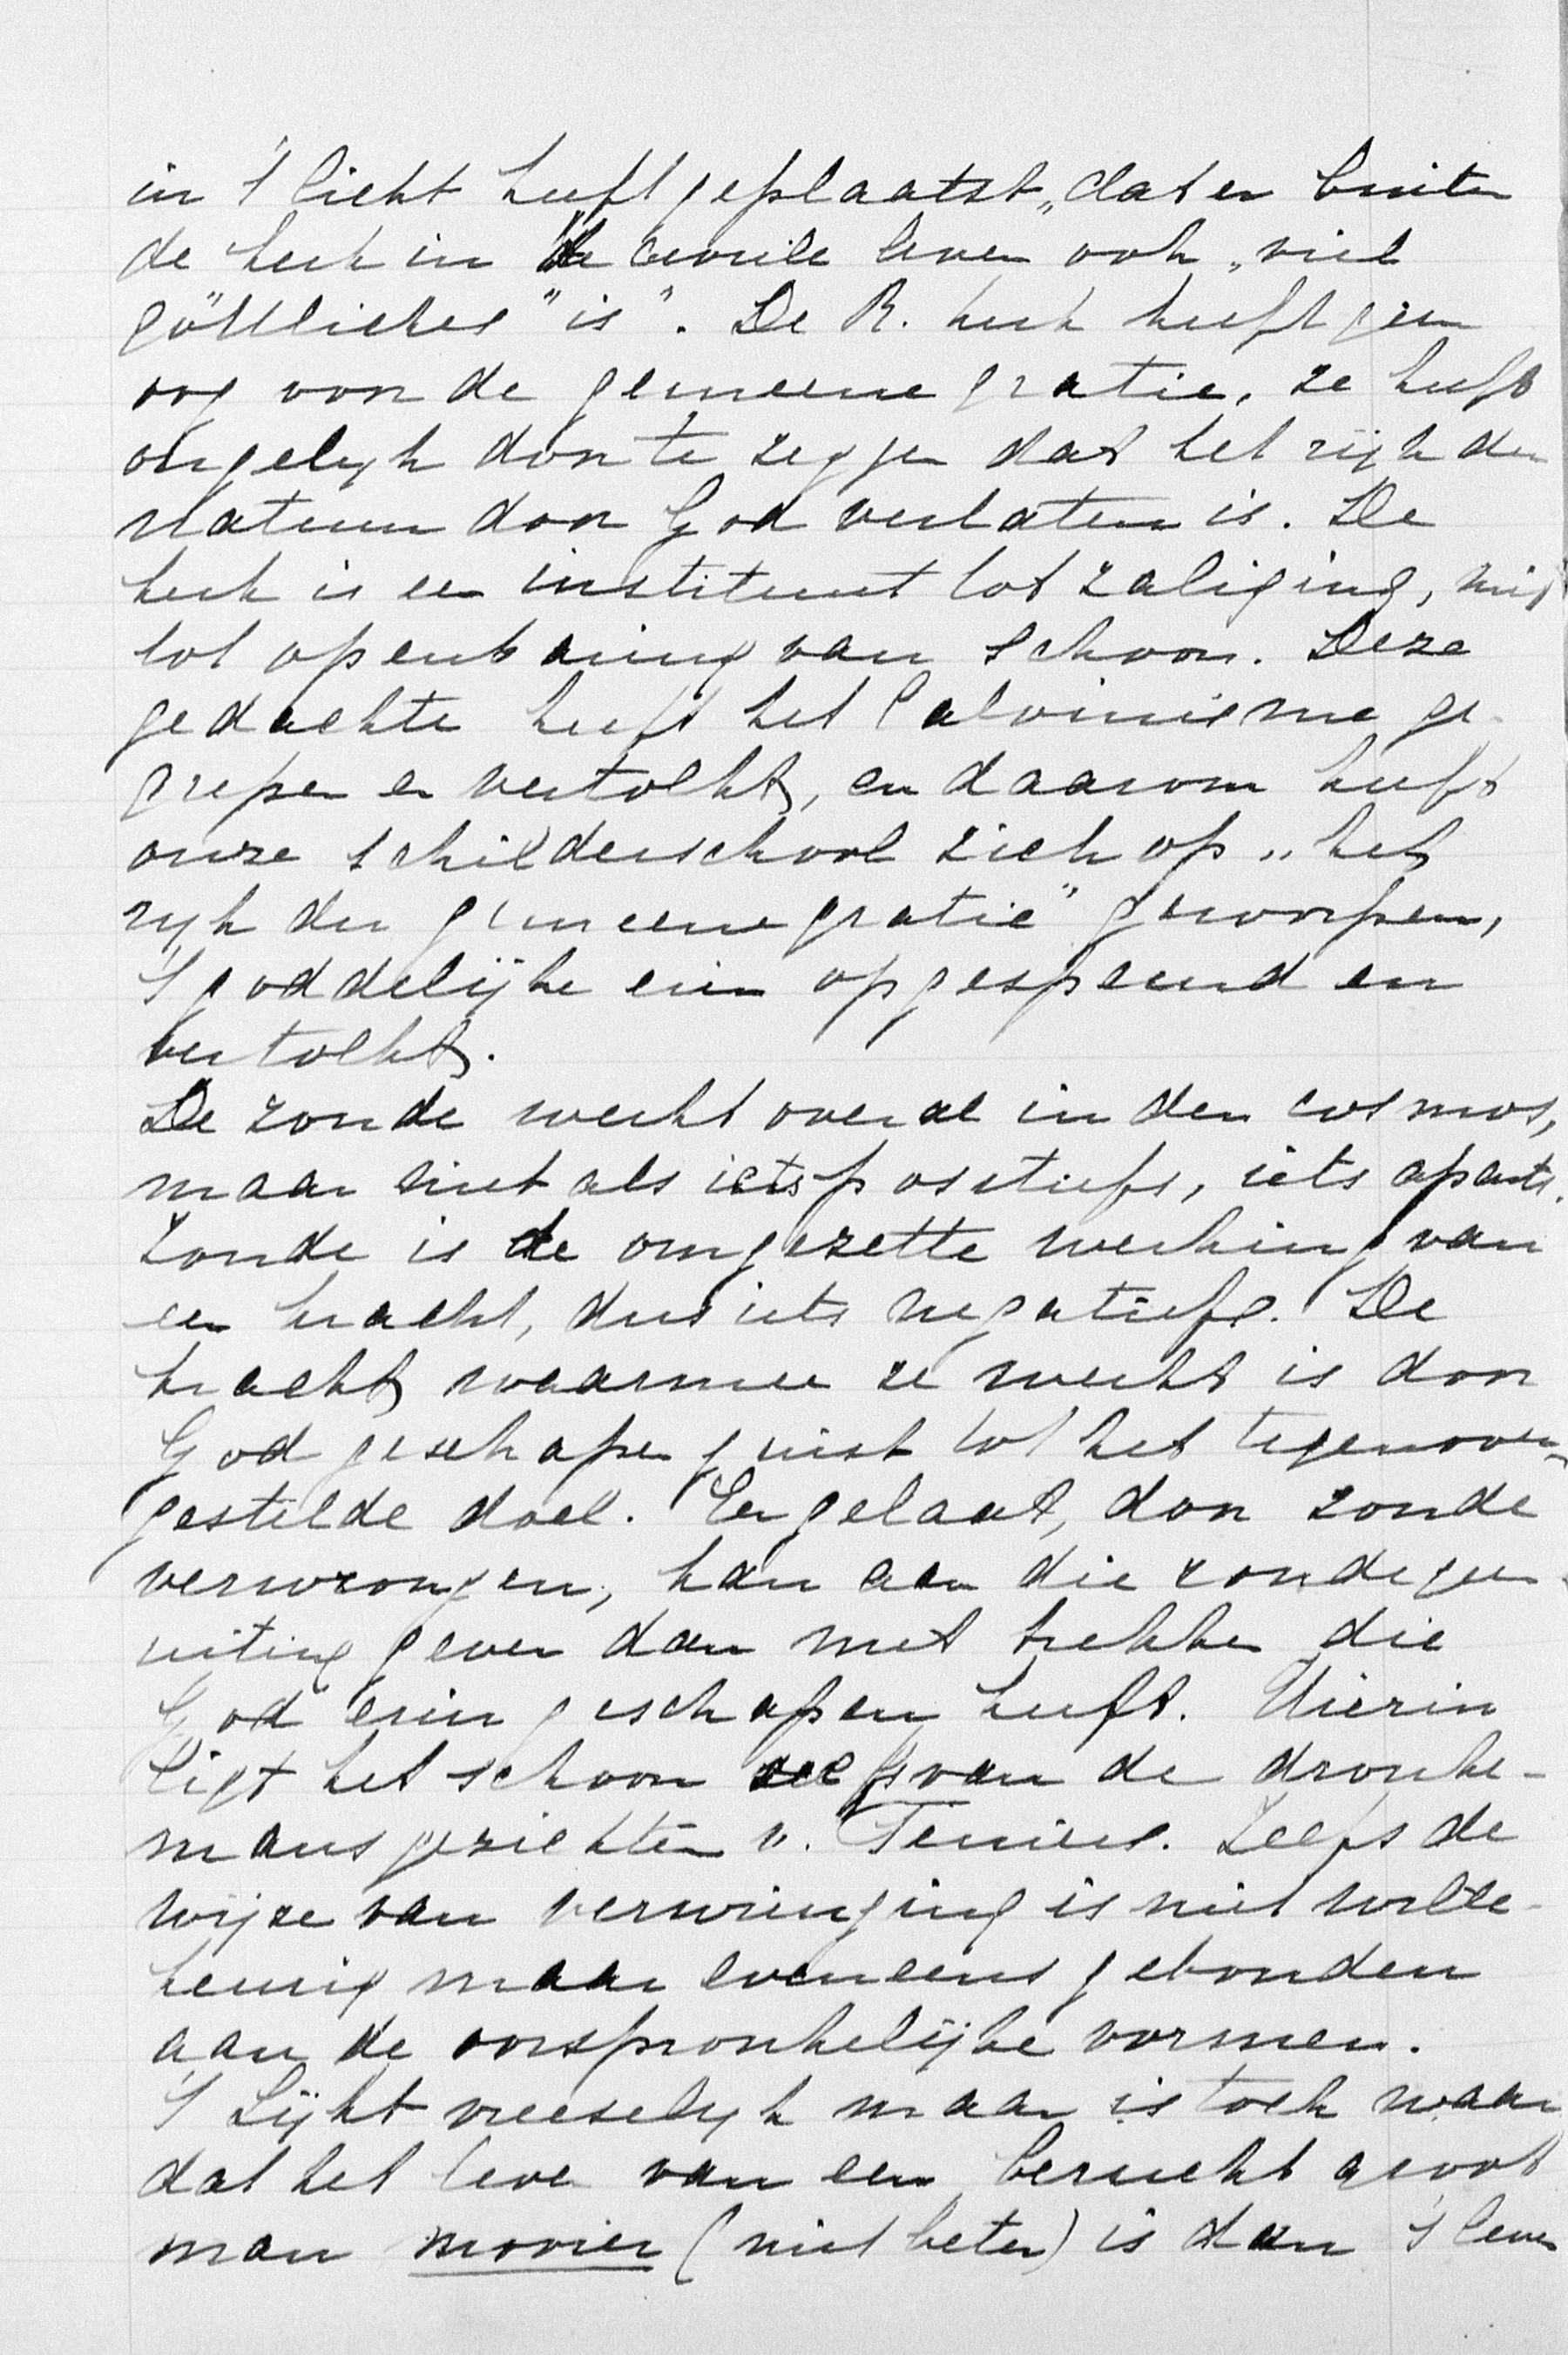 in 't licht heeft geplaatst „dat er buiten
de kerk in de civiele leven ook „viel
göttliches" is". De R. kerk heeft geen
oog voor de gemeene gratie, ze heeft
ongelijk door te zeggen dat het rijk der
natuur door God verlaten is. De
kerk is een instituut tot zaliging, niet
tot openbaring van schoon. Deze
gedachte heeft het Calvinisme ge-
grepen en vertolkt, en daarom heeft
onze schilderschool zich op „het
rijk der gemeene gratie" geworpen,
't goddelijke erin opgespeurd en
vertolkt.
De zonde werkt overal in den cosmos,
maar niet als iets positiefs, iets aparts.
Zonde is de omgezette werking van
een kracht, dus iets negatiefs. De
kracht waarmee ze werkt is door
God geschapen juist tot het tegenover-
gestelde doel. Een gelaat, door zonde
verwrongen, kan aan die zonde geen
uiting geven dan met trekken die
God erin geschapen heeft. Hierin
ligt het schoon zelfs van de dronke-
mansgezichten v. Teniers. Zelfs de
wijze van verwringing is niet wille-
keurig maar eveneens gebonden
aan de oorspronkelijke vormen.
't Lijkt vreeselijk maar is toch waar
dat het leven van een berucht groot
man mooier (niet beter) is dan 't leven